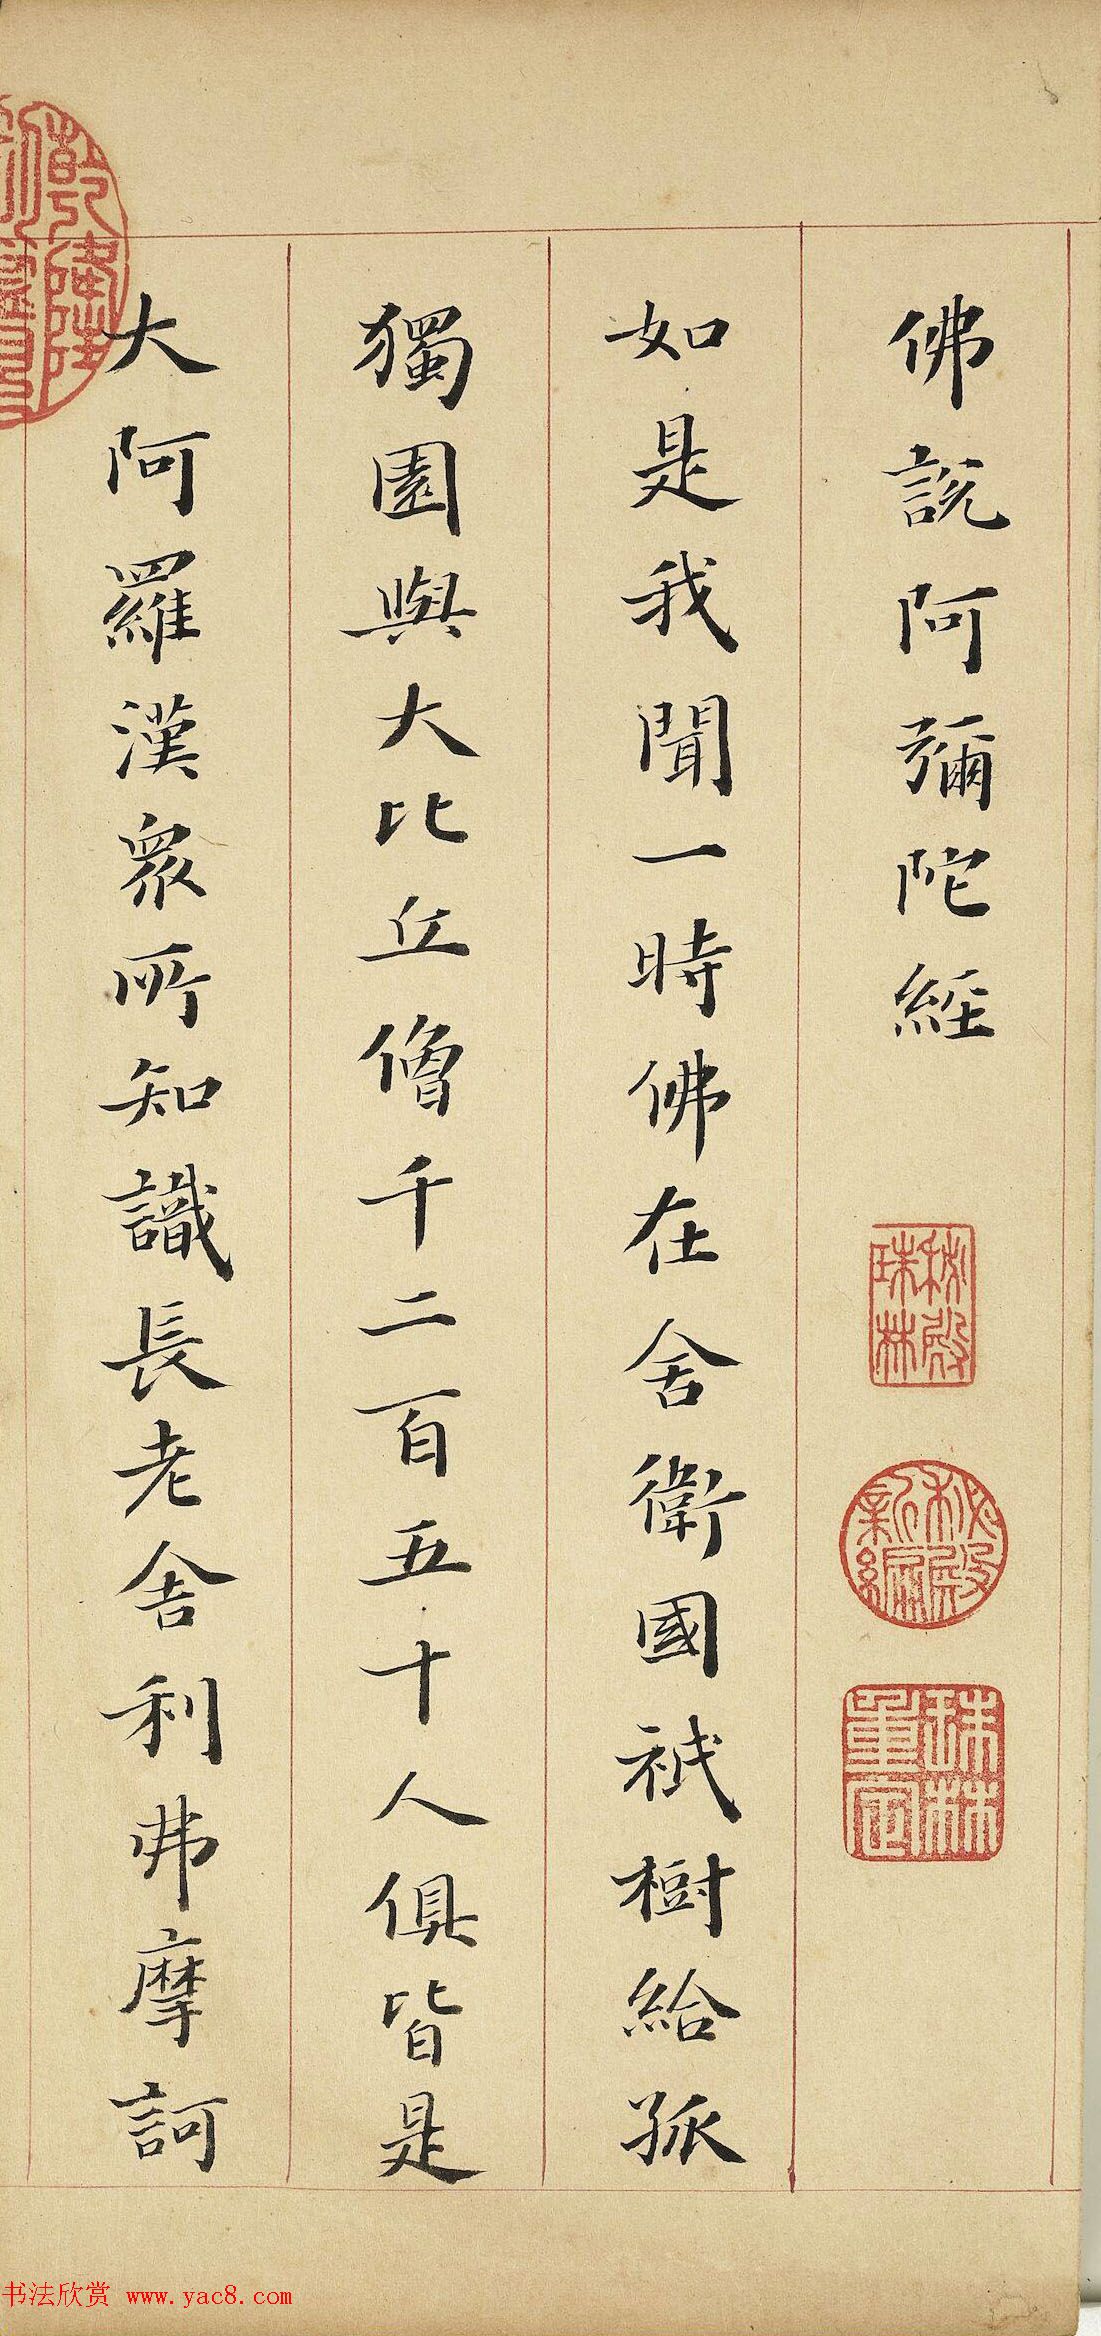 佛說阿彌陀經
如是我聞一時佛在舍衛國祇樹給孤
獨園與大比丘僧千二百五十人俱皆是
大阿羅漢眾所知識長老舍利弗摩訶
秘殿珠林
秘殿新編
珠林重定
乾隆
书法欣赏 www.yac8.com